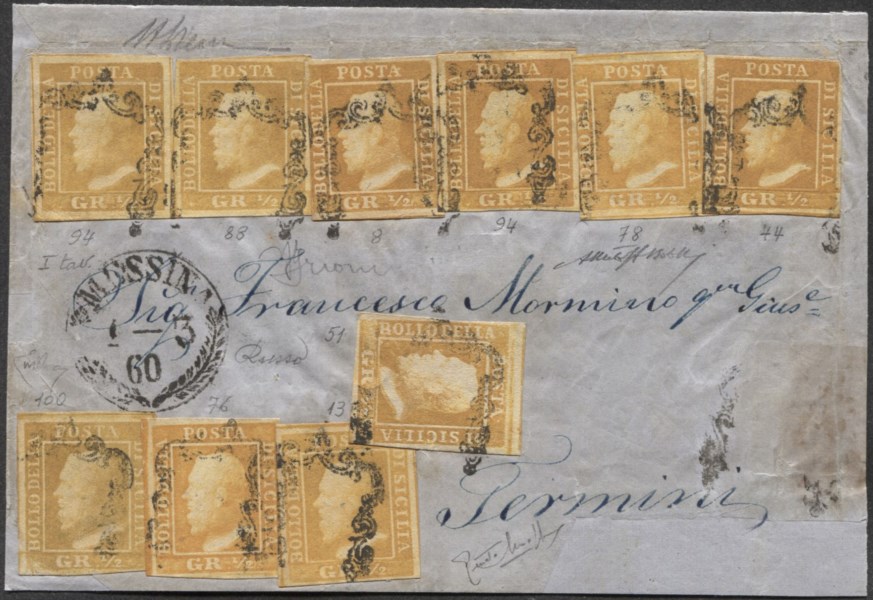 BOLLO DELLA POSTA DI SICILIA GR. 1/2
BOLLO DELLA POSTA DI SICILIA GR. 1/2
BOLLO DELLA POSTA DI SICILIA GR. 1/2
BOLLO DELLA POSTA DI SICILIA GR. 1/2
BOLLO DELLA POSTA DI SICILIA GR. 1/2
BOLLO DELLA POSTA DI SICILIA GR. 1/2
94 88 8 94 78 44
I tav.
MESSINA
60
Sig Francesco Mormino qm Gius e
51
Russo
100 76 13
BOLLO DELLA POSTA DI SICILIA GR
BOLLO DELLA POSTA DI SICILIA GR. 1/2
BOLLO DELLA POSTA DI SICILIA GR. 1/2
BOLLO DELLA POSTA DI SICILIA GR. 1/2
Termini